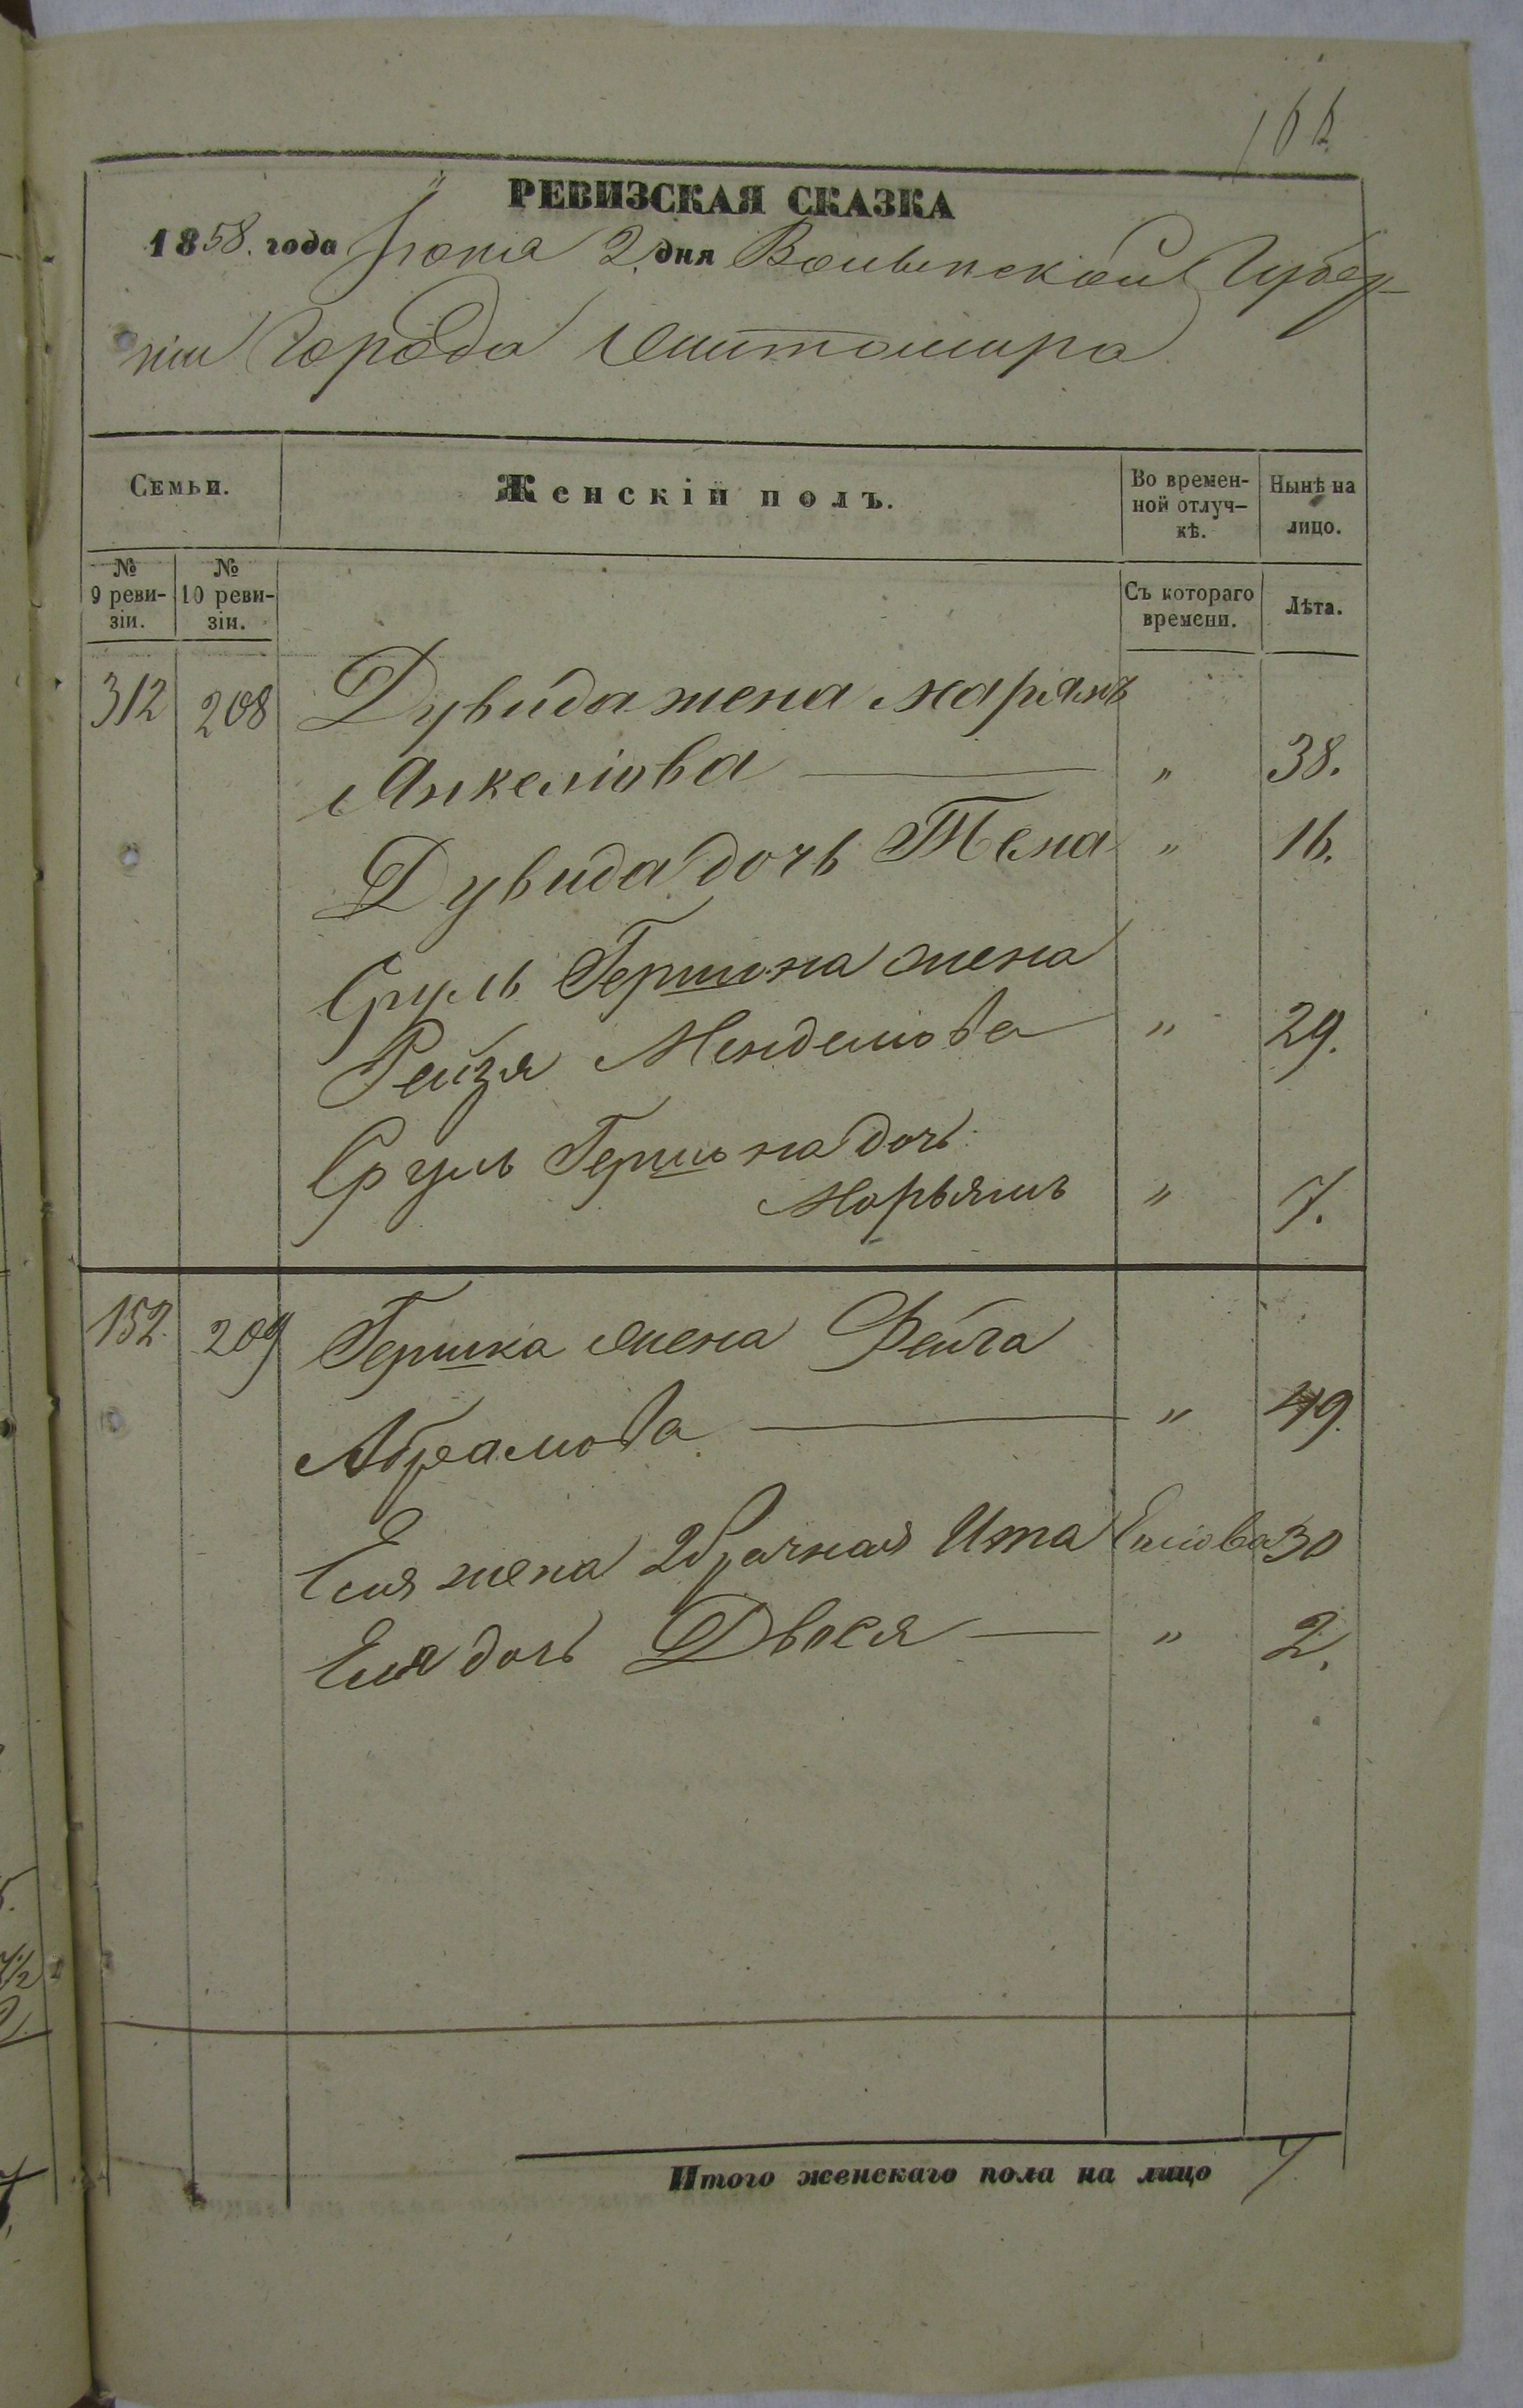 166
РЕВИЗСКАЯ СКАЗКА
1858. года Іюня 2 дня Волынской Губер-
ніи Города Житомира
Семьи.
Женскій полъ.
Во времен-
ной отлуч-
кѣ.
Нынѣ на
лицо.
№
9 реви-
зіи.
№
10 реви-
зіи.
Съ котораго
времени.
Лѣта.
312 208 Дувида жена Марямъ
Анкелiова — " 38.
Дувида дочь Тема " 16.
Сруль Гершона жена
Рейзя Менделiова " 29.
Сруль Гершона дочь
Марьямъ " 7.
152. 209 Гершка жена Фейга
Абрамова — " 49.
Еля жена 2 брачная Ита Елiова 30
Еля дочь Двося — " 2.
Итого женскаго пола на лицо 7